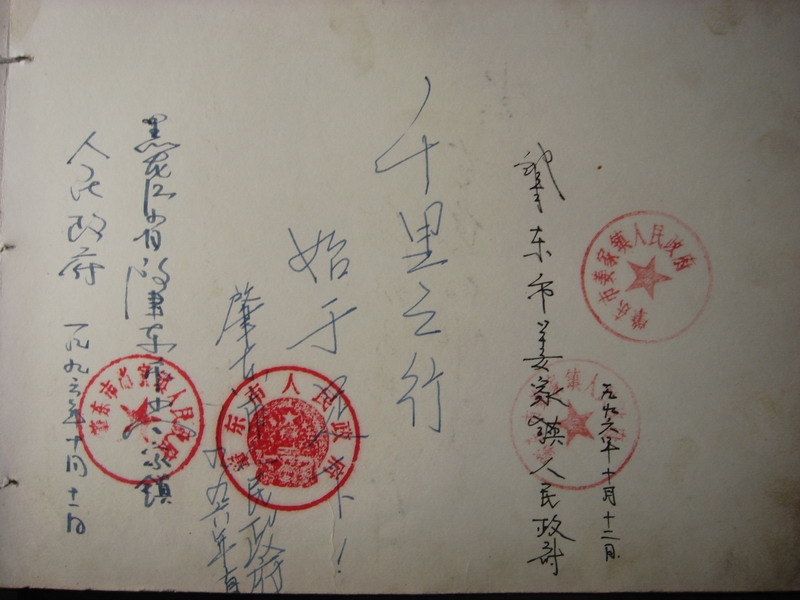 肇东市姜家镇人民政府
一九九六年十月十二日
肇东市姜家镇人民政府
千里之行
始于足下!
肇东市人民政府
一九九六年十月
肇东市人民政府
黑龙江省肇东市
镇
人民政府 一九九六年十月十二日